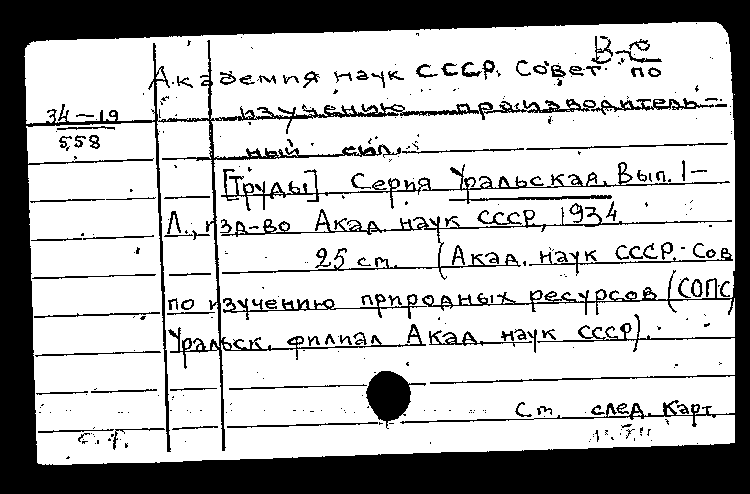 В-О
Академия наук СССР. Совет по
34-19
558
изучению производитель-
ный сил.
[Труды]. Серия Уральская. Вып. 1-
Л., изд-во Акад. наук СССР, 1934.
25 ст. (Акад. наук СССР. Сов
по изучению природных ресурсов (СОПС
Уральск. филиал Акад. наук СССР).
Ст. след. карт.